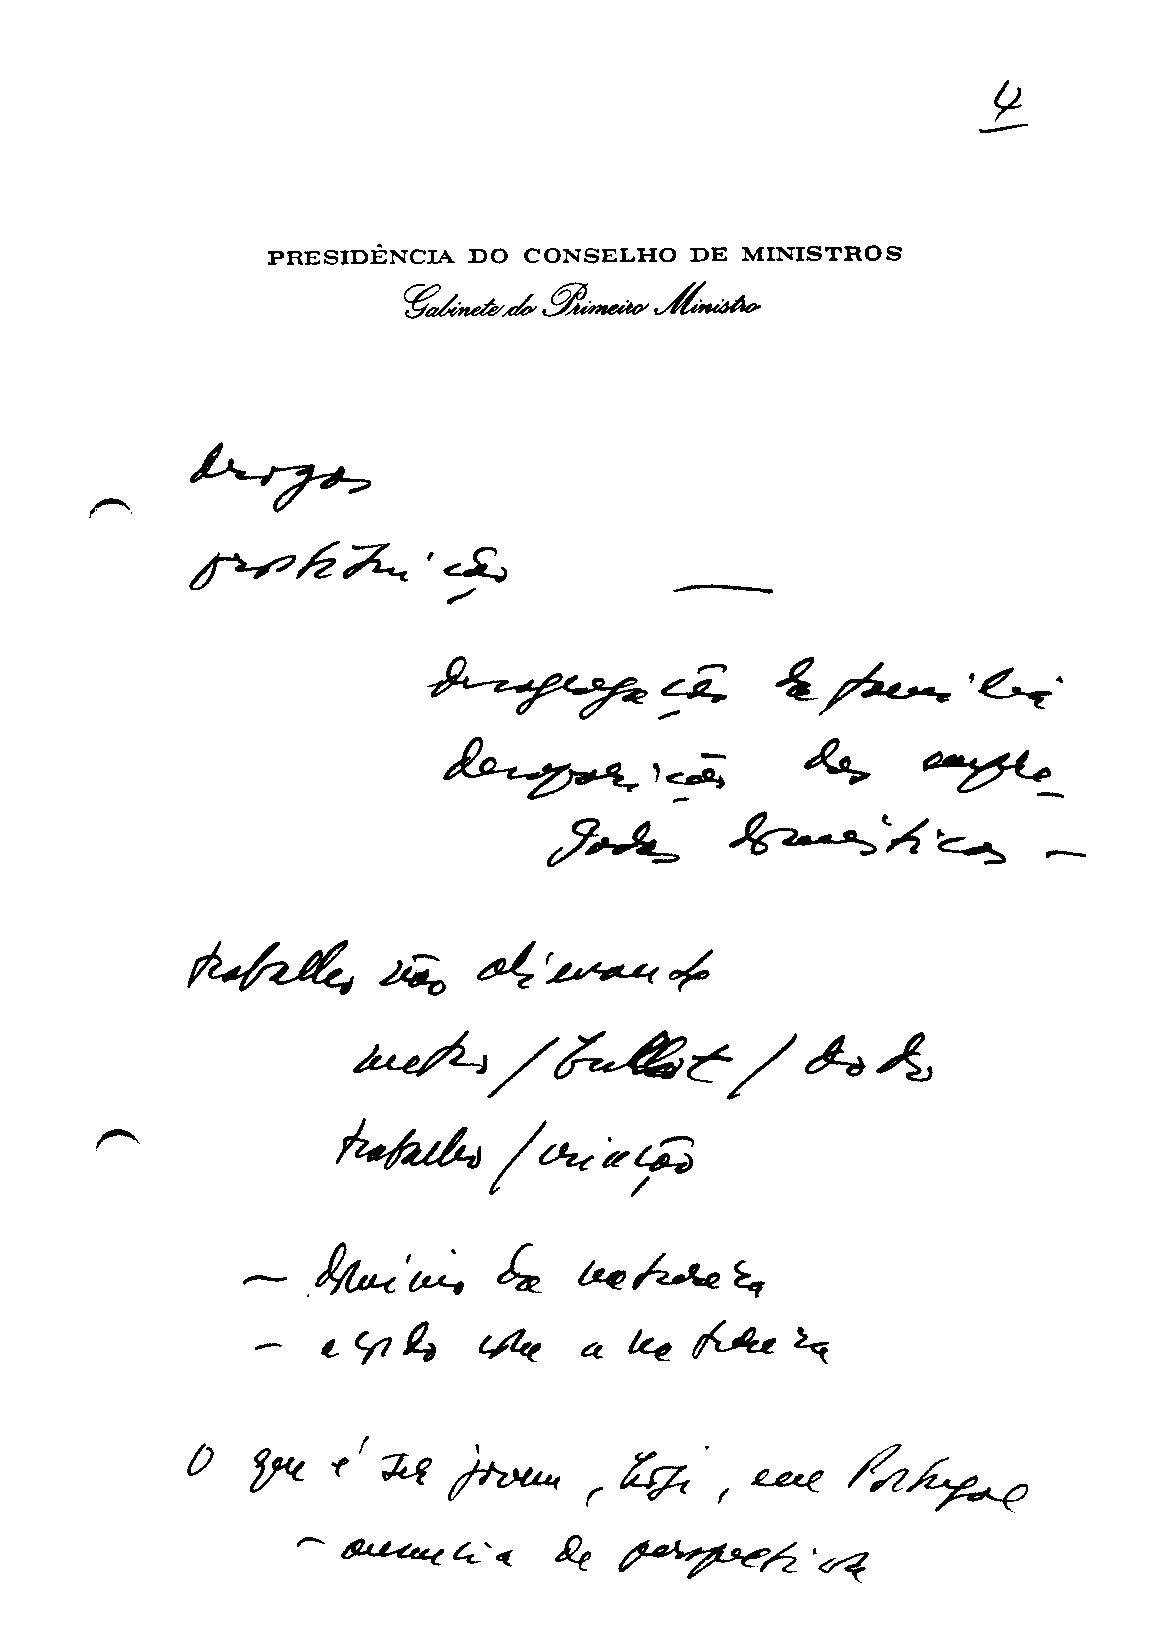 4
PRESIDÊNCIA DO CONSELHO DE MINISTROS
Gabinete do Primeiro Ministro
drogas
prostituição —
desagregação da família
desaparição das empre-
gadas domésticas —
trabalho não alienando
metro / boulot / dodo
trabalho / criação
— domínio da natureza
— acordo com a natureza
O que é ser jovem, hoje, em Portugal
— ausência de perspectiva